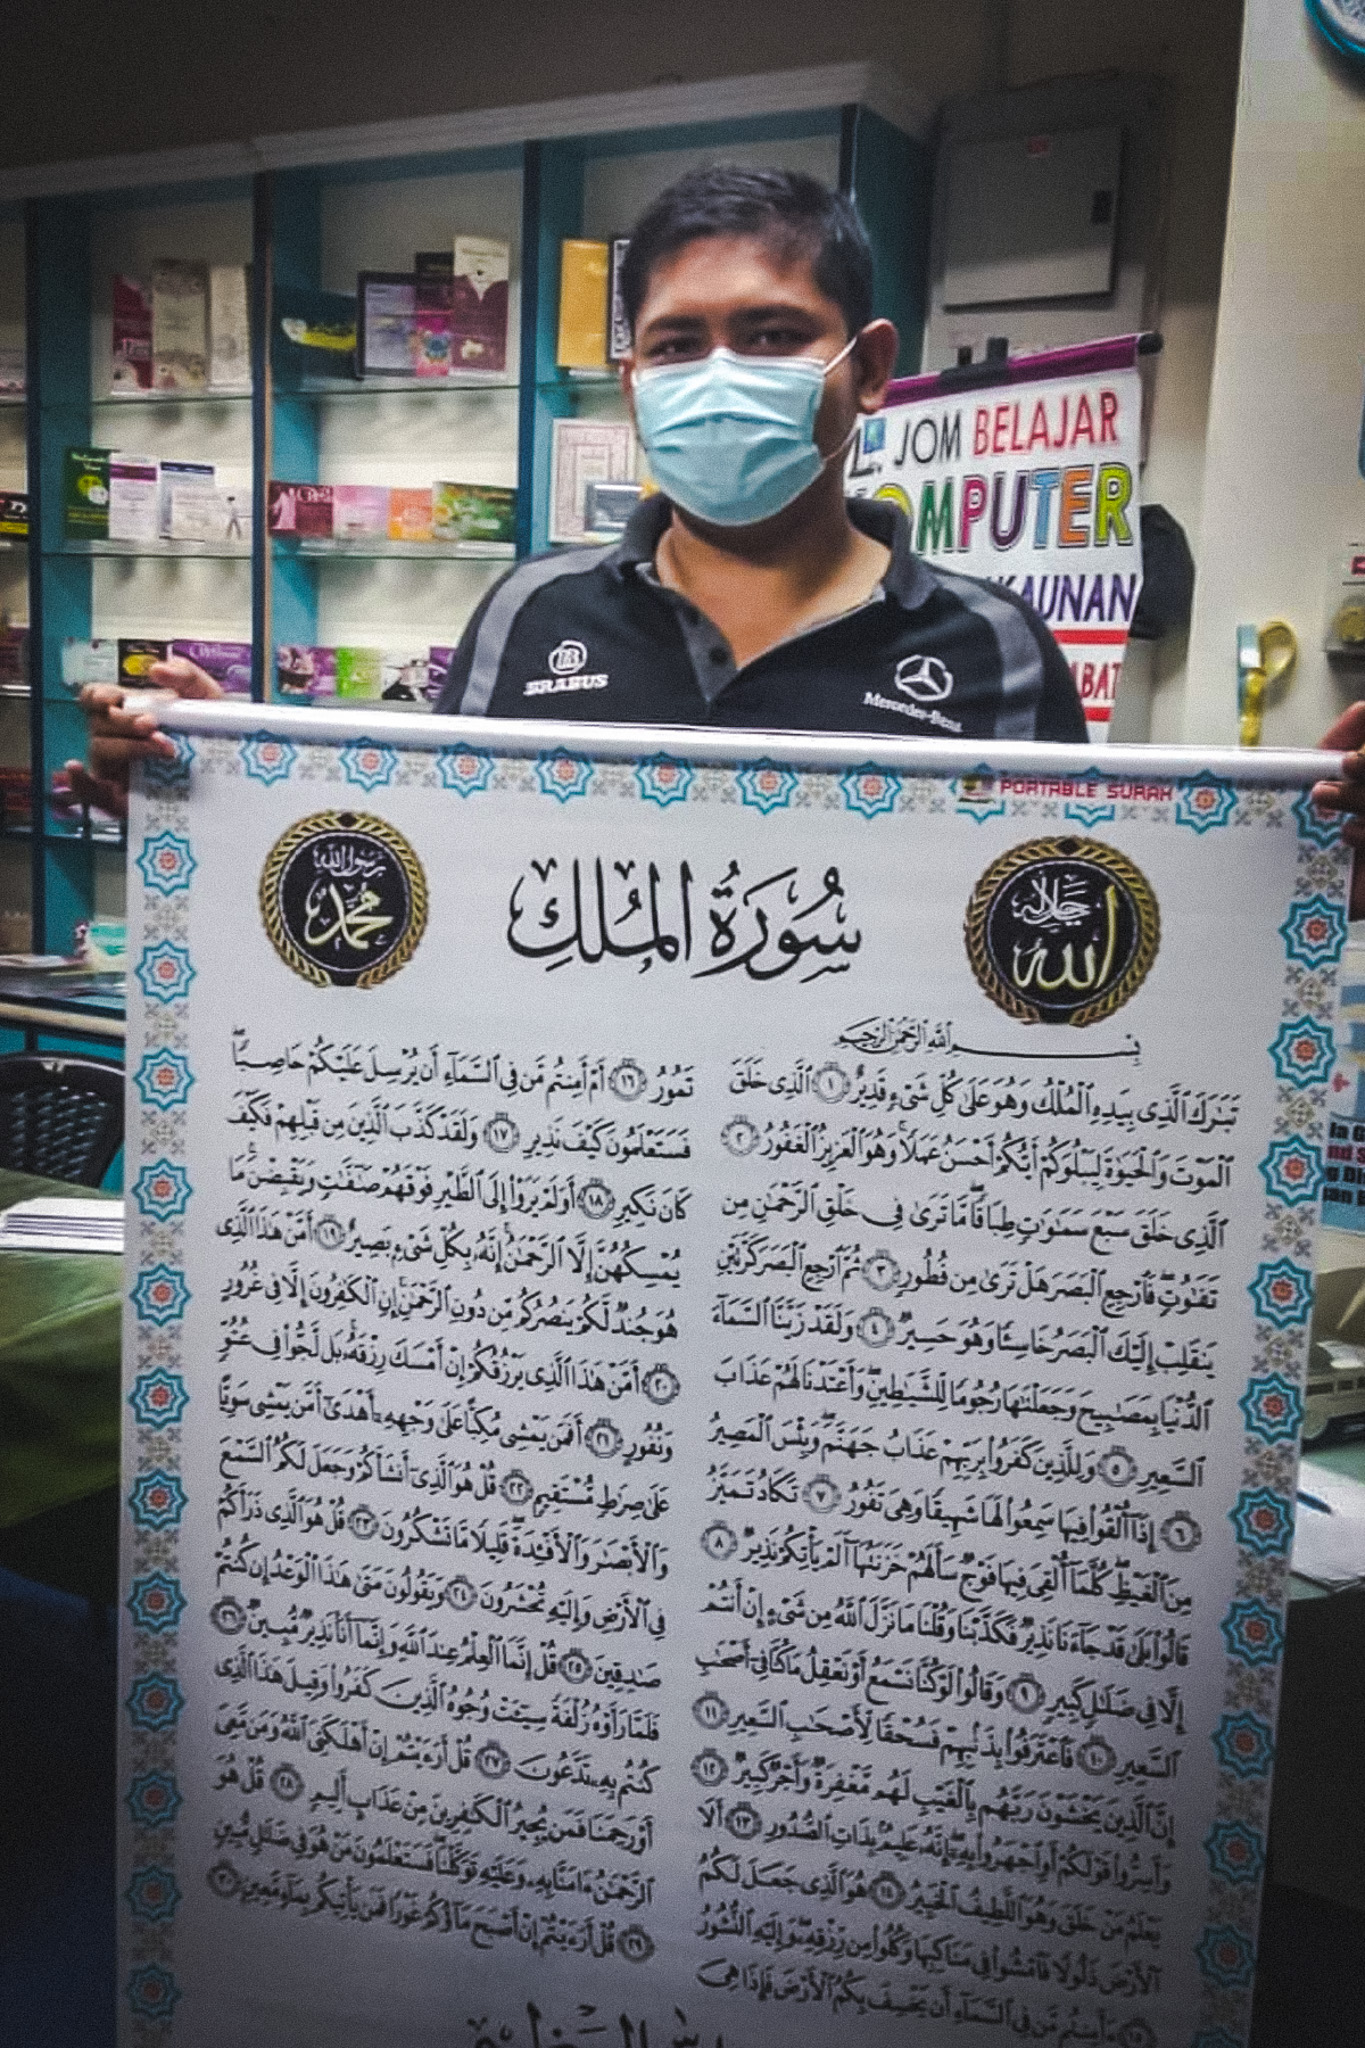 JOM BELAJAR
KOMPUTER
BRABUS
Mercedes-Benz
PORTABLE SURAH
رسول الله
محمد
سُورَةُ المُلكِ
جل جلاله
الله
بِسْمِ ٱللَّهِ ٱلرَّحْمَٰنِ ٱلرَّحِيمِ
تَبَٰرَكَ ٱلَّذِى بِيَدِهِ ٱلْمُلْكُ وَهُوَ عَلَىٰ كُلِّ شَىْءٍ قَدِيرٌ ١ ٱلَّذِى خَلَقَ
ٱلْمَوْتَ وَٱلْحَيَوٰةَ لِيَبْلُوَكُمْ أَيُّكُمْ أَحْسَنُ عَمَلًا وَهُوَ ٱلْعَزِيزُ ٱلْغَفُورُ ٢
ٱلَّذِى خَلَقَ سَبْعَ سَمَٰوَٰتٍ طِبَاقًا مَّا تَرَىٰ فِى خَلْقِ ٱلرَّحْمَٰنِ مِن
تَفَٰوُتٍ فَٱرْجِعِ ٱلْبَصَرَ هَلْ تَرَىٰ مِن فُطُورٍ ٣ ثُمَّ ٱرْجِعِ ٱلْبَصَرَ كَرَّتَيْنِ
يَنقَلِبْ إِلَيْكَ ٱلْبَصَرُ خَاسِئًا وَهُوَ حَسِيرٌ ٤ وَلَقَدْ زَيَّنَّا ٱلسَّمَآءَ
ٱلدُّنْيَا بِمَصَٰبِيحَ وَجَعَلْنَٰهَا رُجُومًا لِّلشَّيَٰطِينِ وَأَعْتَدْنَا لَهُمْ عَذَابَ
ٱلسَّعِيرِ ٥ وَلِلَّذِينَ كَفَرُوا۟ بِرَبِّهِمْ عَذَابُ جَهَنَّمَ وَبِئْسَ ٱلْمَصِيرُ
٦ إِذَآ أُلْقُوا۟ فِيهَا سَمِعُوا۟ لَهَا شَهِيقًا وَهِىَ تَفُورُ ٧ تَكَادُ تَمَيَّزُ
مِنَ ٱلْغَيْظِ كُلَّمَآ أُلْقِىَ فِيهَا فَوْجٌ سَأَلَهُمْ خَزَنَتُهَآ أَلَمْ يَأْتِكُمْ نَذِيرٌ ٨
قَالُوا۟ بَلَىٰ قَدْ جَآءَنَا نَذِيرٌ فَكَذَّبْنَا وَقُلْنَا مَا نَزَّلَ ٱللَّهُ مِن شَىْءٍ إِنْ أَنتُمْ
إِلَّا فِى ضَلَٰلٍ كَبِيرٍ ٩ وَقَالُوا۟ لَوْ كُنَّا نَسْمَعُ أَوْ نَعْقِلُ مَا كُنَّا فِىٓ أَصْحَٰبِ
ٱلسَّعِيرِ ١٠ فَٱعْتَرَفُوا۟ بِذَنۢبِهِمْ فَسُحْقًا لِّأَصْحَٰبِ ٱلسَّعِيرِ ١١
إِنَّ ٱلَّذِينَ يَخْشَوْنَ رَبَّهُم بِٱلْغَيْبِ لَهُم مَّغْفِرَةٌ وَأَجْرٌ كَبِيرٌ ١٢
وَأَسِرُّوا۟ قَوْلَكُمْ أَوِ ٱجْهَرُوا۟ بِهِۦٓ إِنَّهُۥ عَلِيمٌۢ بِذَاتِ ٱلصُّدُورِ ١٣ أَلَا
يَعْلَمُ مَنْ خَلَقَ وَهُوَ ٱللَّطِيفُ ٱلْخَبِيرُ ١٤ هُوَ ٱلَّذِى جَعَلَ لَكُمُ
ٱلْأَرْضَ ذَلُولًا فَٱمْشُوا۟ فِى مَنَاكِبِهَا وَكُلُوا۟ مِن رِّزْقِهِۦ وَإِلَيْهِ ٱلنُّشُورُ
١٥ ءَأَمِنتُم مَّن فِى ٱلسَّمَآءِ أَن يَخْسِفَ بِكُمُ ٱلْأَرْضَ فَإِذَا هِىَ
تَمُورُ ١٦ أَمْ أَمِنتُم مَّن فِى ٱلسَّمَآءِ أَن يُرْسِلَ عَلَيْكُمْ حَاصِبًا
فَسَتَعْلَمُونَ كَيْفَ نَذِيرِ ١٧ وَلَقَدْ كَذَّبَ ٱلَّذِينَ مِن قَبْلِهِمْ فَكَيْفَ
كَانَ نَكِيرِ ١٨ أَوَلَمْ يَرَوْا۟ إِلَى ٱلطَّيْرِ فَوْقَهُمْ صَٰٓفَّٰتٍ وَيَقْبِضْنَ مَا
يُمْسِكُهُنَّ إِلَّا ٱلرَّحْمَٰنُ إِنَّهُۥ بِكُلِّ شَىْءٍۭ بَصِيرٌ ١٩ أَمَّنْ هَٰذَا ٱلَّذِى
هُوَ جُندٌ لَّكُمْ يَنصُرُكُم مِّن دُونِ ٱلرَّحْمَٰنِ إِنِ ٱلْكَٰفِرُونَ إِلَّا فِى غُرُورٍ
٢٠ أَمَّنْ هَٰذَا ٱلَّذِى يَرْزُقُكُمْ إِنْ أَمْسَكَ رِزْقَهُۥ بَل لَّجُّوا۟ فِى عُتُوٍّ
وَنُفُورٍ ٢١ أَفَمَن يَمْشِى مُكِبًّا عَلَىٰ وَجْهِهِۦٓ أَهْدَىٰٓ أَمَّن يَمْشِى سَوِيًّا
عَلَىٰ صِرَٰطٍ مُّسْتَقِيمٍ ٢٢ قُلْ هُوَ ٱلَّذِىٓ أَنشَأَكُمْ وَجَعَلَ لَكُمُ ٱلسَّمْعَ
وَٱلْأَبْصَٰرَ وَٱلْأَفْـِٔدَةَ قَلِيلًا مَّا تَشْكُرُونَ ٢٣ قُلْ هُوَ ٱلَّذِى ذَرَأَكُمْ
فِى ٱلْأَرْضِ وَإِلَيْهِ تُحْشَرُونَ ٢٤ وَيَقُولُونَ مَتَىٰ هَٰذَا ٱلْوَعْدُ إِن كُنتُمْ
صَٰدِقِينَ ٢٥ قُلْ إِنَّمَا ٱلْعِلْمُ عِندَ ٱللَّهِ وَإِنَّمَآ أَنَا۠ نَذِيرٌ مُّبِينٌ ٢٦
فَلَمَّا رَأَوْهُ زُلْفَةً سِيٓـَٔتْ وُجُوهُ ٱلَّذِينَ كَفَرُوا۟ وَقِيلَ هَٰذَا ٱلَّذِى
كُنتُم بِهِۦ تَدَّعُونَ ٢٧ قُلْ أَرَءَيْتُمْ إِنْ أَهْلَكَنِىَ ٱللَّهُ وَمَن مَّعِىَ
أَوْ رَحِمَنَا فَمَن يُجِيرُ ٱلْكَٰفِرِينَ مِنْ عَذَابٍ أَلِيمٍ ٢٨ قُلْ هُوَ
ٱلرَّحْمَٰنُ ءَامَنَّا بِهِۦ وَعَلَيْهِ تَوَكَّلْنَا فَسَتَعْلَمُونَ مَنْ هُوَ فِى ضَلَٰلٍ مُّبِينٍ
٢٩ قُلْ أَرَءَيْتُمْ إِنْ أَصْبَحَ مَآؤُكُمْ غَوْرًا فَمَن يَأْتِيكُم بِمَآءٍ مَّعِينٍۭ ٣٠